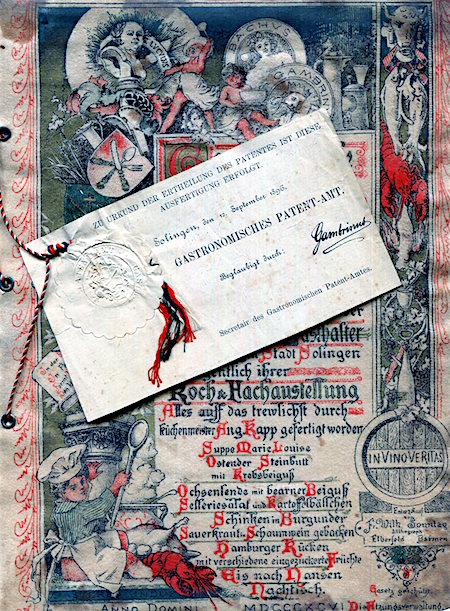 LUCULLUS
BACCHUS
GAMBRIN
ZU URKUND DER ERTHEILUNG DES PATENTES IST DIESE
AUSFERTIGUNG ERFOLGT.
Solingen, den 12. September 1896.
GASTRONOMISCHES PATENT-AMT.
Beglaubigt durch:
Gambrinus
Secretair des Gastronomischen Patent-Amtes.
Stadt Solingen
entlich ihrer
Koch & Fachaustellung
Alles auff das trewlichst durch
küchenmeister Aug. Kapp gefertigt worden
Suppe Marie Louise
Ostender Steinbutt
mit Krebsbeiguß
Ochsenlende mit bearner Beiguß
Selleriesalat und Kartoffelbällchen
Schinken in Burgunder
Sauerkraut i. Schaumwein gebacken
Hamburger Rücken
mit verschiedene eingezuckerte Früchte
Eis nach Nansen
Nachtisch.
IN VINO VERITAS
Fr. Wilh. Sonntag
Elberfeld Barmen
Gesetz. geschützt.
ANNO DOMINI MDCCCXCVI Die Atzungsverwaltung.